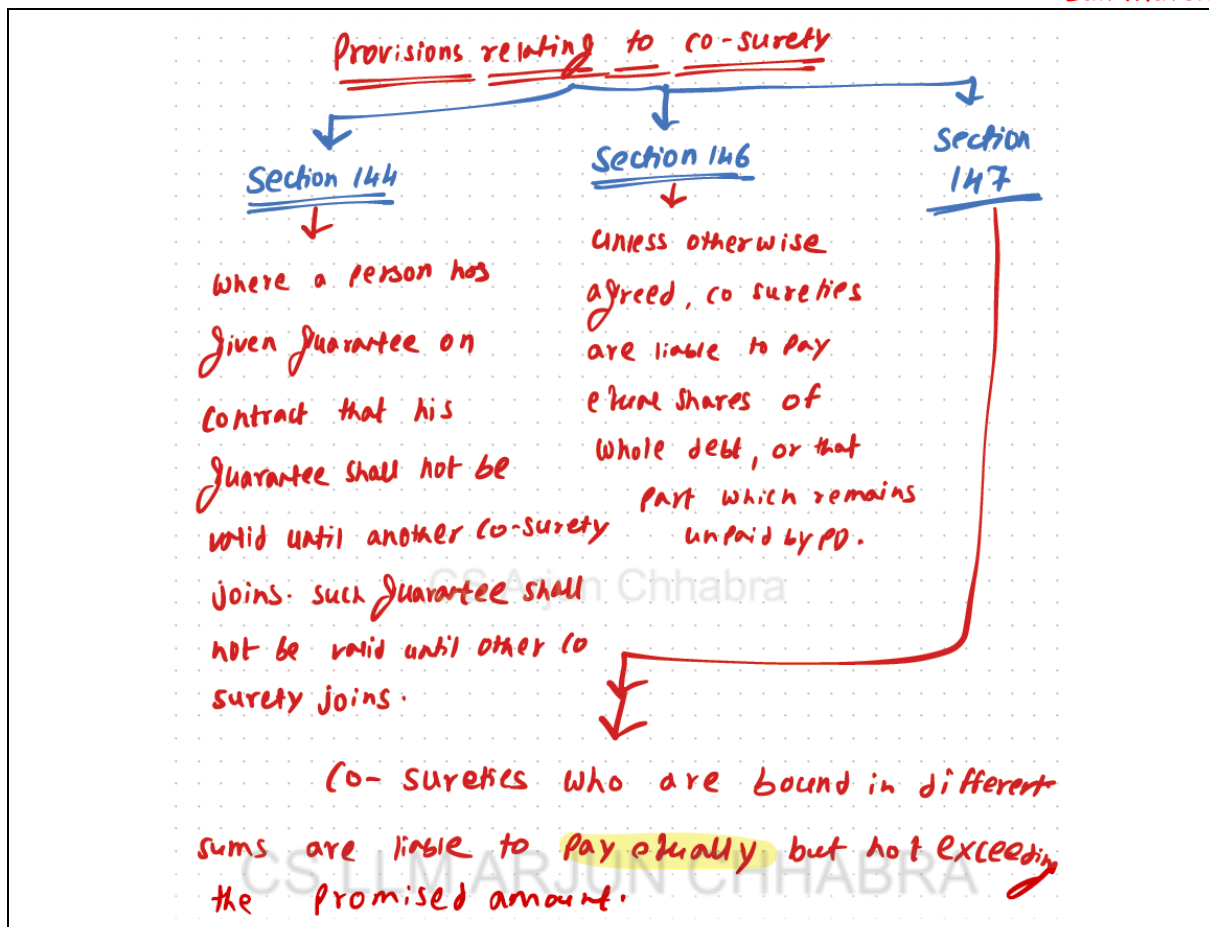 Provisions relating to co-surety
Section 144
where a person has
given guarantee on
contract that his
guarantee shall not be
valid until another co-surety
joins. such guarantee shall
not be valid until other co
surety joins.
Section 146
unless otherwise
agreed, co sureties
are liable to pay
equal shares of
whole debt, or that
part which remains
unpaid by PD.
Section
147
Co-sureties who are bound in different
sums are liable to pay equally but not exceeding
the promised amount.
CS Arjun Chhabra
CS LLM ARJUN CHHABRA